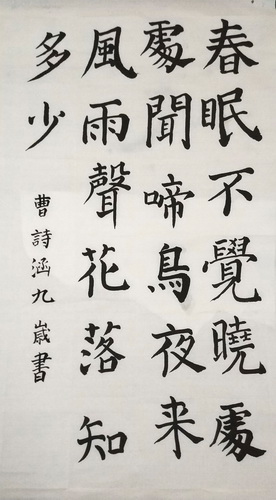 春眠不覺曉處
處聞啼鳥夜来
風雨聲花落知
多少
曹詩涵九歲書